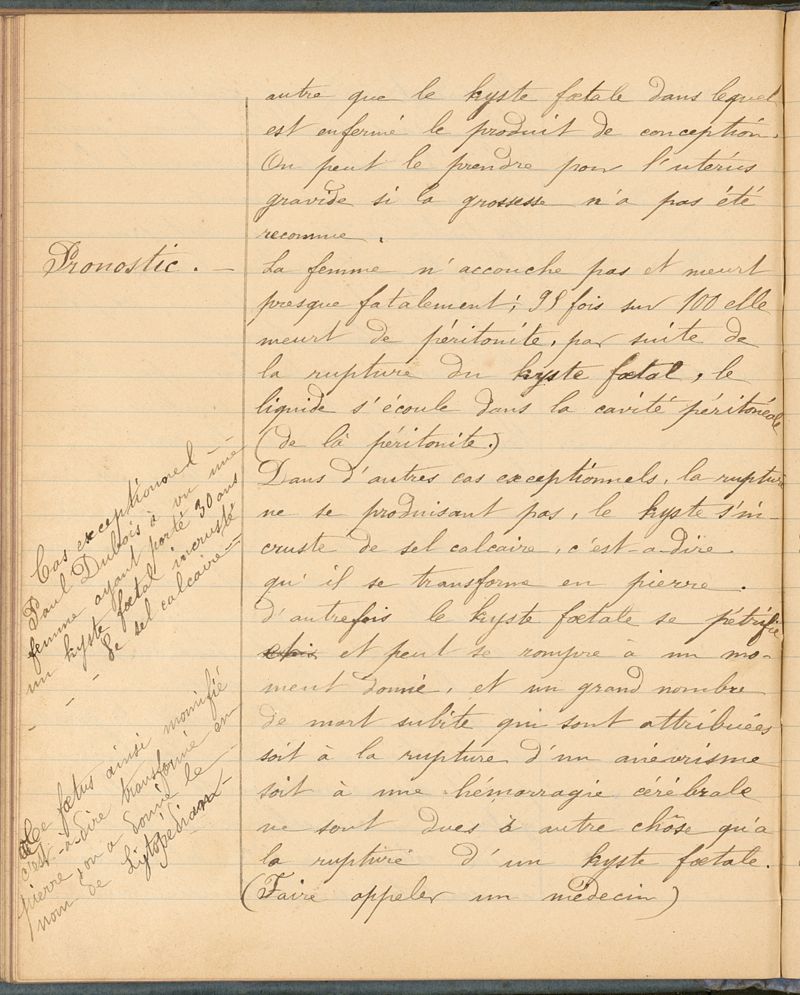 autre que le kyste fœtale dans lequel
est enfermé le produit de conception.
On peut le prendre pour l'utérus
gravide si la grossesse n'a pas été
reconnue.
Pronostic. —
La femme n'accouche pas et meurt
presque fatalement; 95 fois sur 100 elle
meurt de péritonite, par suite de
la rupture du kyste fœtal, le
liquide s'écoule dans la cavité péritonéale
(de là péritonite.)
Dans d'autres cas exceptionnels, la rupture
ne se produisant pas, le kyste s'in-
cruste de sel calcaire, c'est-a-dire
qu'il se transforme en pierre.
d'autrefois le kyste fœtale se pétrifie
et peut se rompre à un mo-
ment donné, et un grand nombre
de mort subite qui sont attribuées
soit à la rupture d'un anévrisme
soit à une hémorragie cérébrale
ne sont dues à autre chôse qu'a
la rupture d'un kyste fœtale.
(Faire appeler un médecin)
Cas exceptionnel —
Paul Dubois à vu une
femme ayant porté 30 ans
un kyste fœtal incrusté
- - - de sel calcaire —
Ce fœtus ainsi momifié
c'est-a-dire transformé en
pierre, on a donné le
nom de Lytopédian —